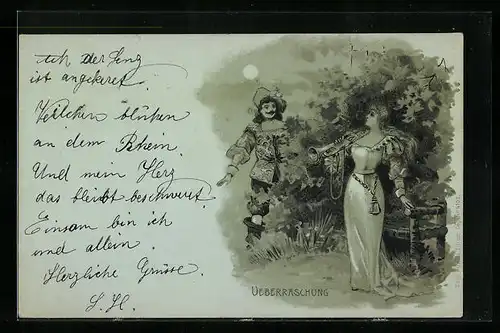 Ach der Lenz
ist angekeret.
Veilchen blühen
an dem Rhein.
Und mein Herz
das bleibt beschwert.
Einsam bin ich
und allein.
Herzliche Grüsse.
S. H.
UEBERRASCHUNG